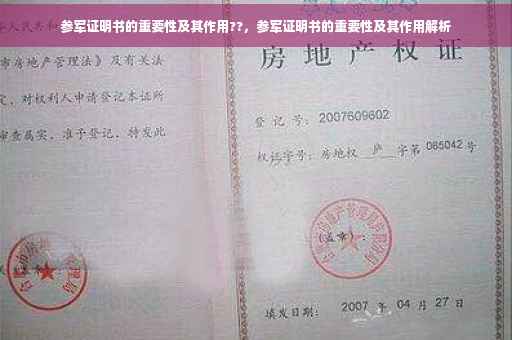 参军证明书的重要性及其作用??，参军证明书的重要性及其作用解析
华人民共和
市房地产管理法》及有关法
定，对权利人申请登记本证所
审查属实，准予登记，特发此
房地产权证
登记号：2007609602
权证字号：房地权 庐 字第 085042 号
(盖章)：
填发日期：2007 年 04 月 27 日